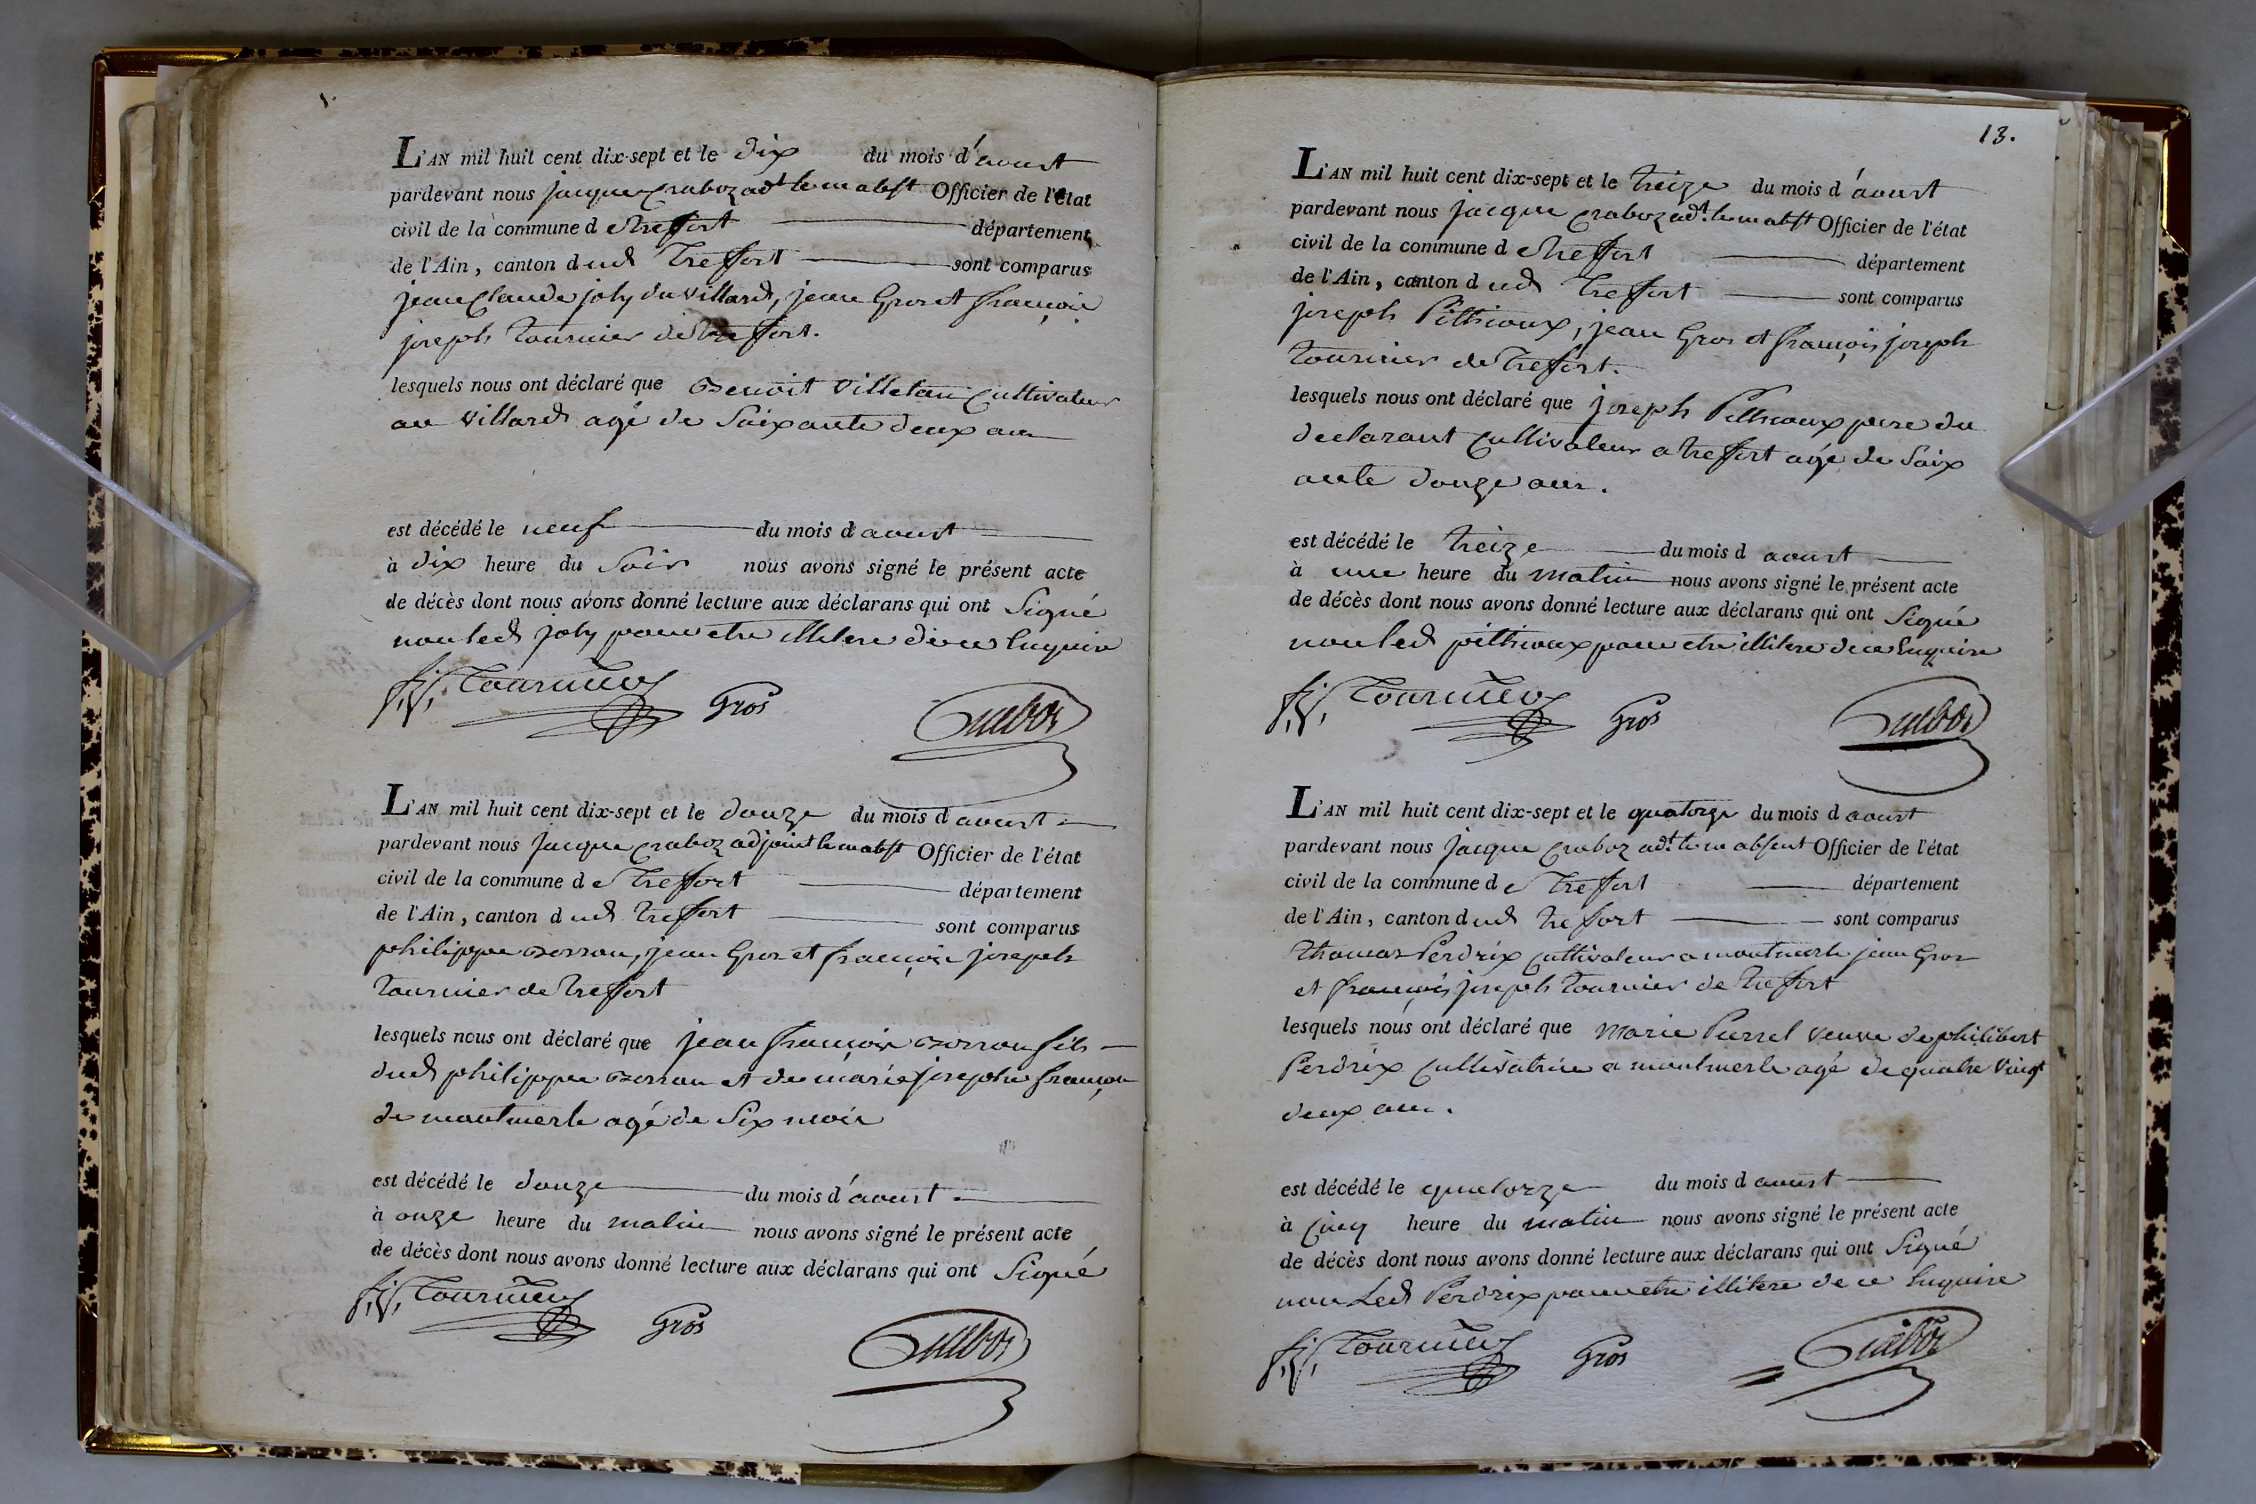 L'AN mil huit cent dix-sept et le dix du mois d'aoust
pardevant nous jacque Craboz adt le m abst Officier de l'état
civil de la commune de Treffort département
de l'Ain, canton dud Treffort sont comparus
jean Claude joly du villard, jean Gros et françois
joseph Tournier de Treffort.
lesquels nous ont déclaré que Benoit Villetan Cultivateur
au Villard agé de Soixante deux ans
est décédé le neuf du mois d aoust
à dix heure du Soir nous avons signé le présent acte
de décès dont nous avons donné lecture aux déclarans qui ont Signé
non led joly pour etre illitere de ce Enquis
f. j. Tournier Gros Crabos
L'AN mil huit cent dix-sept et le douze du mois d aoust
pardevant nous jacque Craboz adjoint le m abst Officier de l'état
civil de la commune de Treffort département
de l'Ain, canton dud Treffort sont comparus
philippe Borron, jean Gros et françois joseph
Tournier de Treffort
lesquels nous ont déclaré que jean françois Borron fils
dud philippe Borron et de marie josephe françon
de montmerle agé de Six mois
est décédé le douze du mois d'aoust
à onze heure du matin nous avons signé le présent acte
de décès dont nous avons donné lecture aux déclarans qui ont Signé
f. j. Tournier Gros Crabos
13.
L'AN mil huit cent dix-sept et le treize du mois d'aoust
pardevant nous jacque Craboz adt le m abst Officier de l'état
civil de la commune de Treffort département
de l'Ain, canton dud Treffort sont comparus
joseph Pithioux, jean Gros et françois joseph
Tournier de Treffort.
lesquels nous ont déclaré que joseph Pithioux pere du
declarant Cultivateur a treffort agé de Soix
ante douze ans.
est décédé le treize du mois d aoust
à une heure du matin nous avons signé le présent acte
de décès dont nous avons donné lecture aux déclarans qui ont Signé
non led pithioux pour etre illitere de ce Enquis
f. j. Tournier Gros Crabos
L'AN mil huit cent dix-sept et le quatorze du mois d aoust
pardevant nous jacque Craboz adt le m absent Officier de l'état
civil de la commune de Treffort département
de l'Ain, canton dud treffort sont comparus
Thomas Perdrix Cultivateur a montmerle jean Gros
et françois joseph Tournier de Treffort
lesquels nous ont déclaré que Marie Purrel veuve de philibert
Perdrix Cultivatrice a montmerle agé de quatre Vingt
deux ans.
est décédé le quatorze du mois d aoust
à Cinq heure du matin nous avons signé le présent acte
de décès dont nous avons donné lecture aux déclarans qui ont Signé
non Led Perdrix pour etre illitere de ce Enquis
f. j. Tournier Gros Crabos